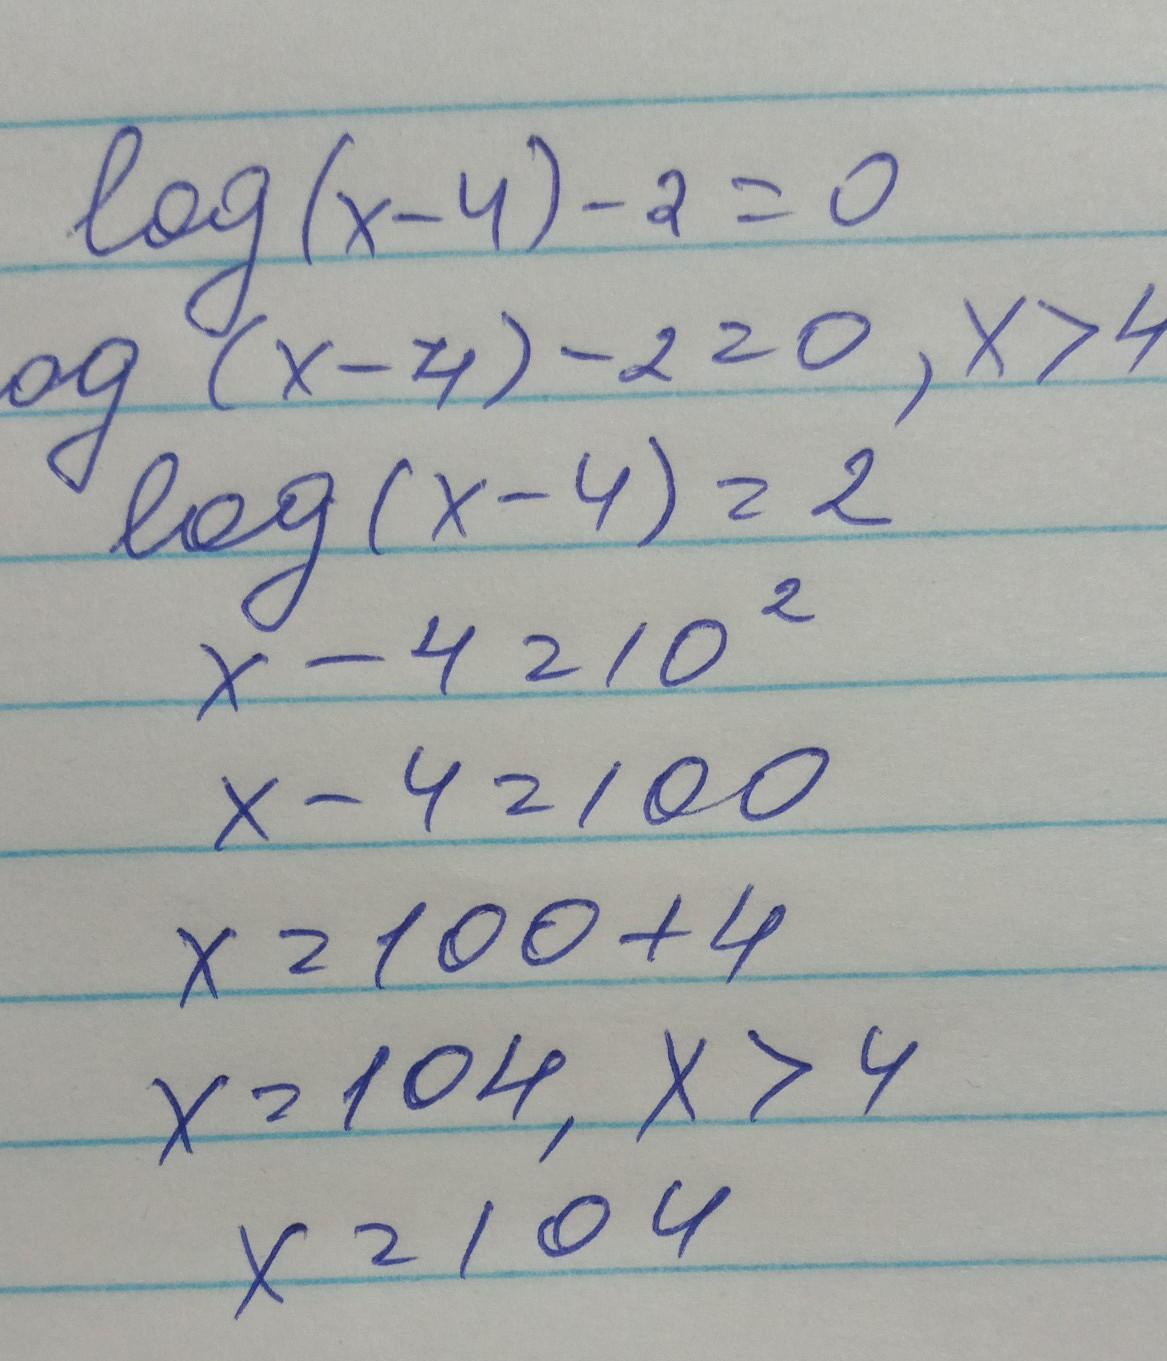 log(x-4)-2=0
og(x-4)-2=0, x>4
log(x-4)=2
x-4=10²
x-4=100
x=100+4
x=104, x>4
x=104